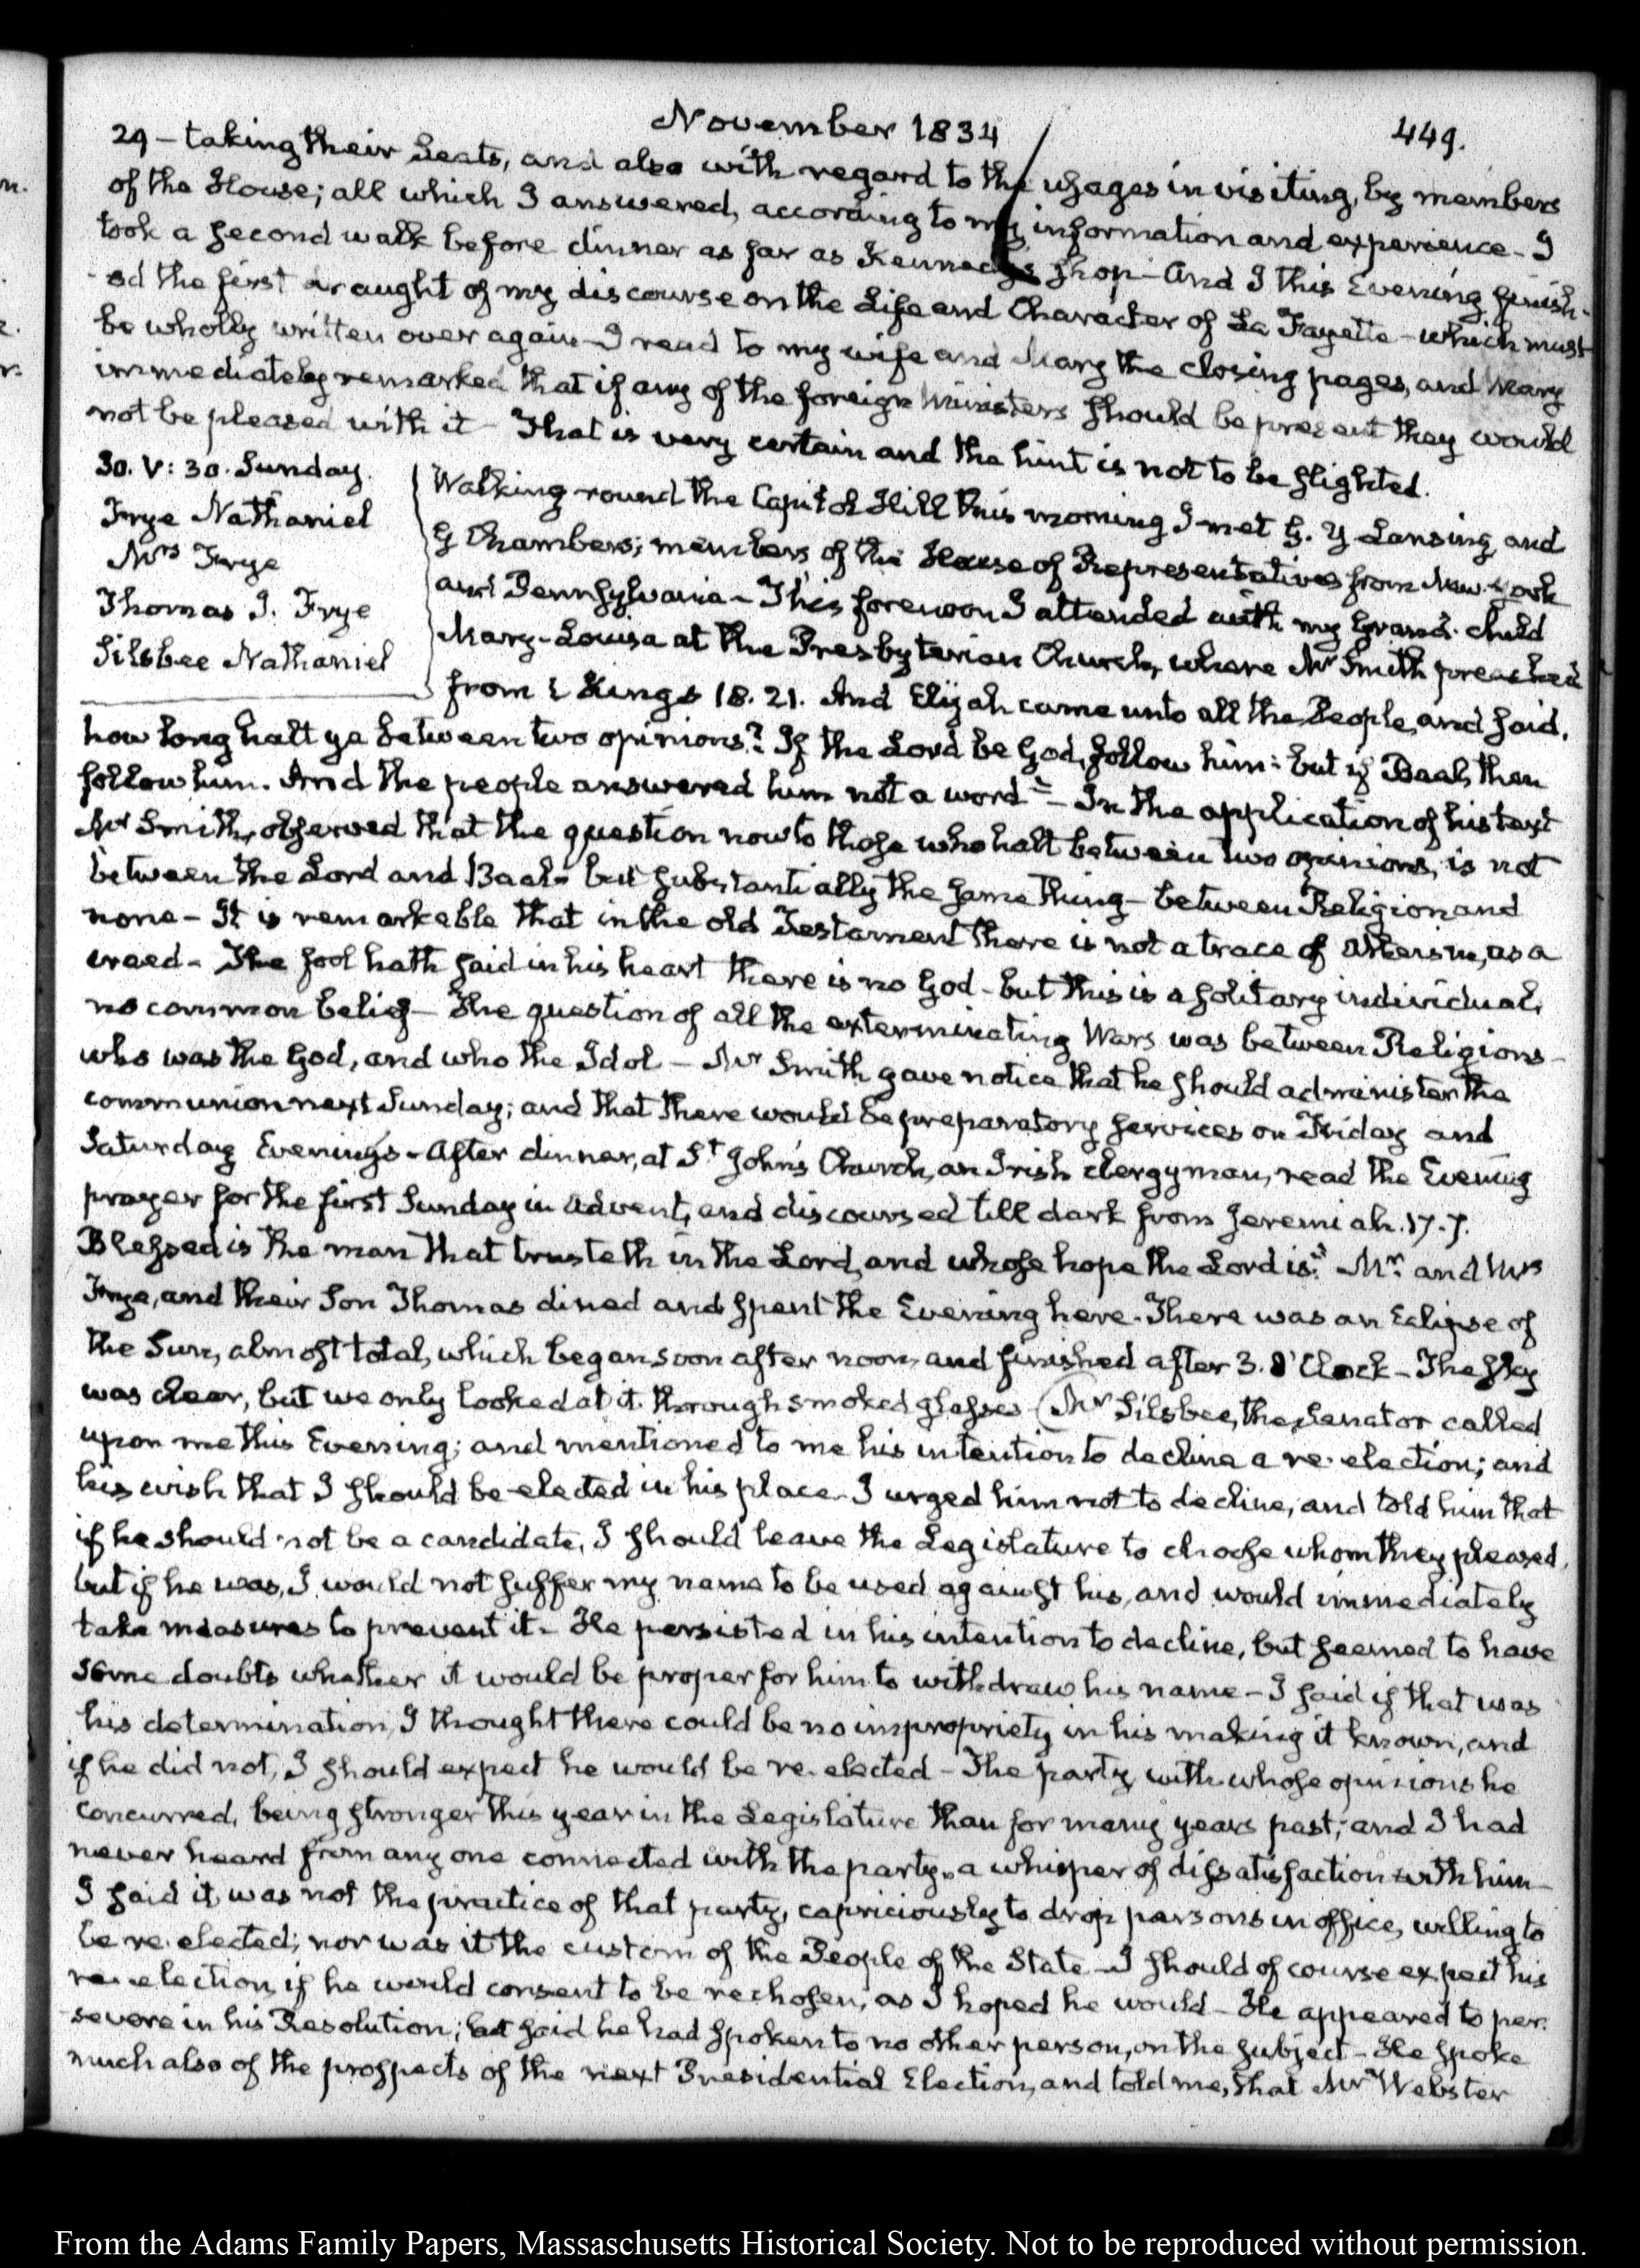 November 1834
449.
29 – taking their Seats, and also with regard to the usages in visiting, by members
of the House; all which I answered, according to my information and experience – I
took a second walk before dinner as far as Kennedy's shop – And I this Evening finish-
ed the first draught of my discourse on the Life and Character of La Fayette – which must
be wholly written over again – I read to my wife and Mary the closing pages, and Mary
immediately remarked that if any of the foreign Ministers should be present they would
not be pleased with it – That is very certain and the hint is not to be slighted.
30. V: 30. Sunday.
Frye Nathaniel
Mrs Frye
Thomas J. Frye
Silsbee Nathaniel
Walking round the Capitol Hill this morning I met G. Y Lansing, and
G Chambers; members of the House of Representatives from New-York
and Pennsylvania – This forenoon I attended with my Grand-child
Mary-Louisa at the Presbyterian Church, where Mr Smith preached
from 1 Kings 18. 21. And Elijah came unto all the People, and said,
how long halt ye between two opinions? If the Lord be God, follow him: but if Baal, then
follow him. And the people answered him not a word" – In the application of his text
Mr Smith, observed that the question now to those who halt between two opinions, is not
between the Lord and Baal – but substantially the same thing – between Religion and
none – It is remarkable that in the old Testament there is not a trace of Atheism, as a
creed – The fool hath said in his heart there is no God – but this is a solitary individual,
no common belief – The question of all the exterminating Wars was between Religions –
who was the God, and who the Idol – Mr Smith gave notice that he should administer the
communion next Sunday; and that there would be preparatory services on Friday and
Saturday Evenings – After dinner, at St John's Church, an Irish clergyman, read the Evening
prayer for the first Sunday in Advent, and discoursed till dark from Jeremiah. 17. 7.
Blessed is the man that trusteth in the Lord, and whose hope the Lord is." Mr. and Mrs
Frye, and their Son Thomas dined and spent the Evening here. There was an Eclipse of
the Sun, almost total, which began soon after noon, and finished after 3. O'Clock – The sky
was clear, but we only looked at it through smoked glasses (Mr Silsbee, the Senator called
upon me this Evening; and mentioned to me his intention to decline a re-election; and
his wish that I should be elected in his place – I urged him not to decline, and told him that
if he should not be a candidate, I should leave the Legislature to choose whom they pleased,
but if he was, I would not suffer my name to be used against his, and would immediately
take measures to prevent it – He persisted in his intention to decline, but seemed to have
some doubts whether it would be proper for him to withdraw his name – I said if that was
his determination, I thought there could be no impropriety in his making it known, and
if he did not, I should expect he would be re-elected – The party with whose opinions he
concurred, being stronger this year in the Legislature than for many years past; and I had
never heard from any one connected with the party, a whisper of dissatisfaction with him –
I said it was not the practice of that party, capriciously to drop persons in office, willing to
be re-elected; nor was it the custom of the People of the State – I should of course expect his
re-election, if he would consent to be rechosen, as I hoped he would – He appeared to per-
severe in his Resolution; but said he had spoken to no other person, on the subject – He spoke
much also of the prospects of the next Presidential Election, and told me, that Mr Webster
From the Adams Family Papers, Massachusetts Historical Society. Not to be reproduced without permission.